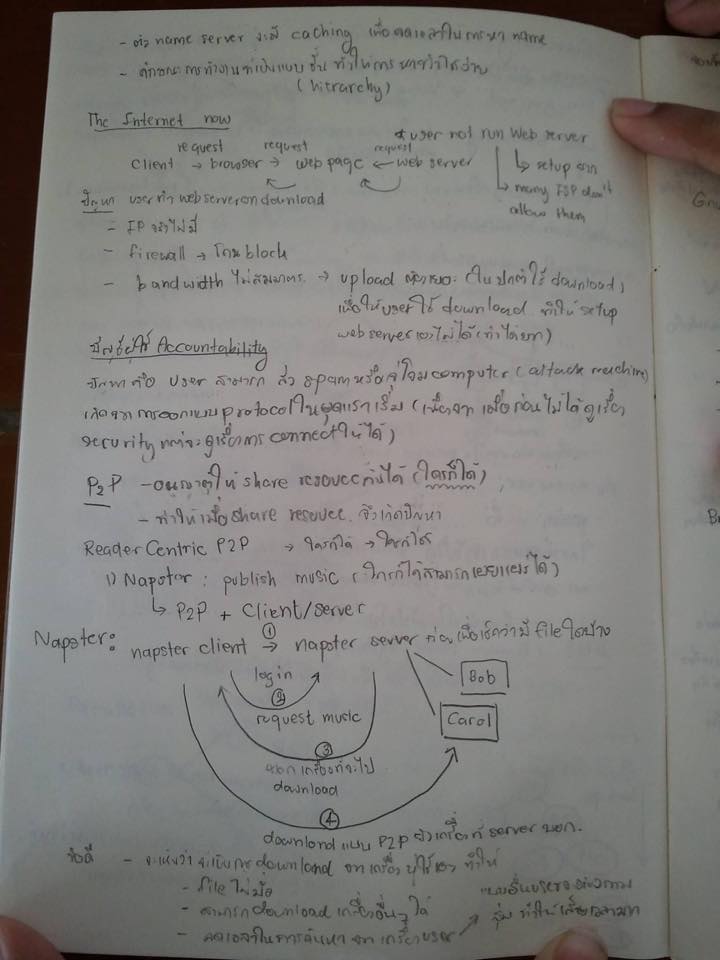 - ตัว name server จะมี caching เพื่อลดเวลาในการหา name
- ลักษณะการทำงานจะเป็นแบบ ชั้น ทำให้การ หาทำได้ง่าย
(hitrarchy)
The Internet now
* user not run Web server
request request request
Client → browser → web page ← web server
↳ setup ยาก
↳ many ISP don't
allow them
ปัญหา user ทำ web server on download
- IP จริงไม่มี
- firewall → โดน block
- bandwidth ไม่สมมาตร → upload
download)
เพื่อให้ user ใช้ download ทำให้ setup
web server เองไม่ได้ (ทำได้ยาก)
Accountability
ปัญหา คือ user สามารถ ส่ง spam หรือ จู่โจม computer (attack machine)
เกิดจาก การออกแบบ protocol ในยุคแรกเริ่ม (เนื่องจาก เมื่อก่อน ไม่ได้ ดูเรื่อง
security แต่จะดูเรื่องการ connect ให้ได้)
P2P - อนุญาตให้ share resouce กันได้ (ใครก็ได้)
- ทำให้เมื่อ share resouce จึงเกิดปัญหา
Reader Centric P2P → ใครก็ได้ → ใครก็ได้
1) Napster : publish music (ใครก็ได้สามารถเผยแพร่ได้)
↳ P2P + Client/Server
Napster: napster client ① → napster server ก่อนเพื่อเช็คว่ามี file ใดบ้าง
login
Bob
②
request music
Carol
③
บอก เครื่องที่จะไป
download
④
download แบบ P2P ยังเครื่องที่ server บอก.
ข้อดี - จะเห็นว่า จะเป็นการ download จาก เครื่อง ผู้ใช้เอง ทำให้
- file ไม่
- สามารถ download เครื่องอื่นๆ ได้
สุ่ม ทำให้เสียเวลามาก
- ลดเวลาในการค้นหา จาก เครื่อง user